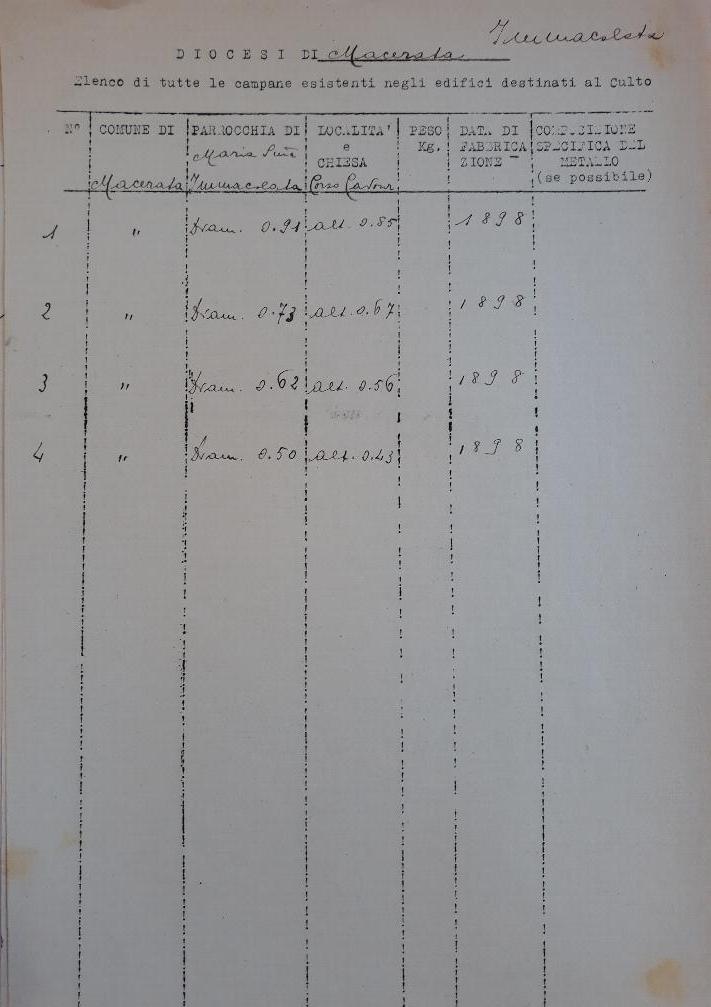 Immacolata
DIOCESI DI Macerata
Elenco di tutte le campane esistenti negli edifici destinati al Culto
N° COMUNE DI PARROCCHIA DI LOCALITA' e CHIESA PESO Kg. DATA DI FABBRICAZIONE COMPOSIZIONE SPECIFICA DEL METALLO (se possibile)
Macerata Maria SSma Immacolata Corso Cavour
1 " Diam. 0.91 alt. 0.85 1898
2 " Diam. 0.73 alt. 0.67 1898
3 " Diam. 0.62 alt. 0.56 1898
4 " Diam. 0.50 alt. 0.43 1898